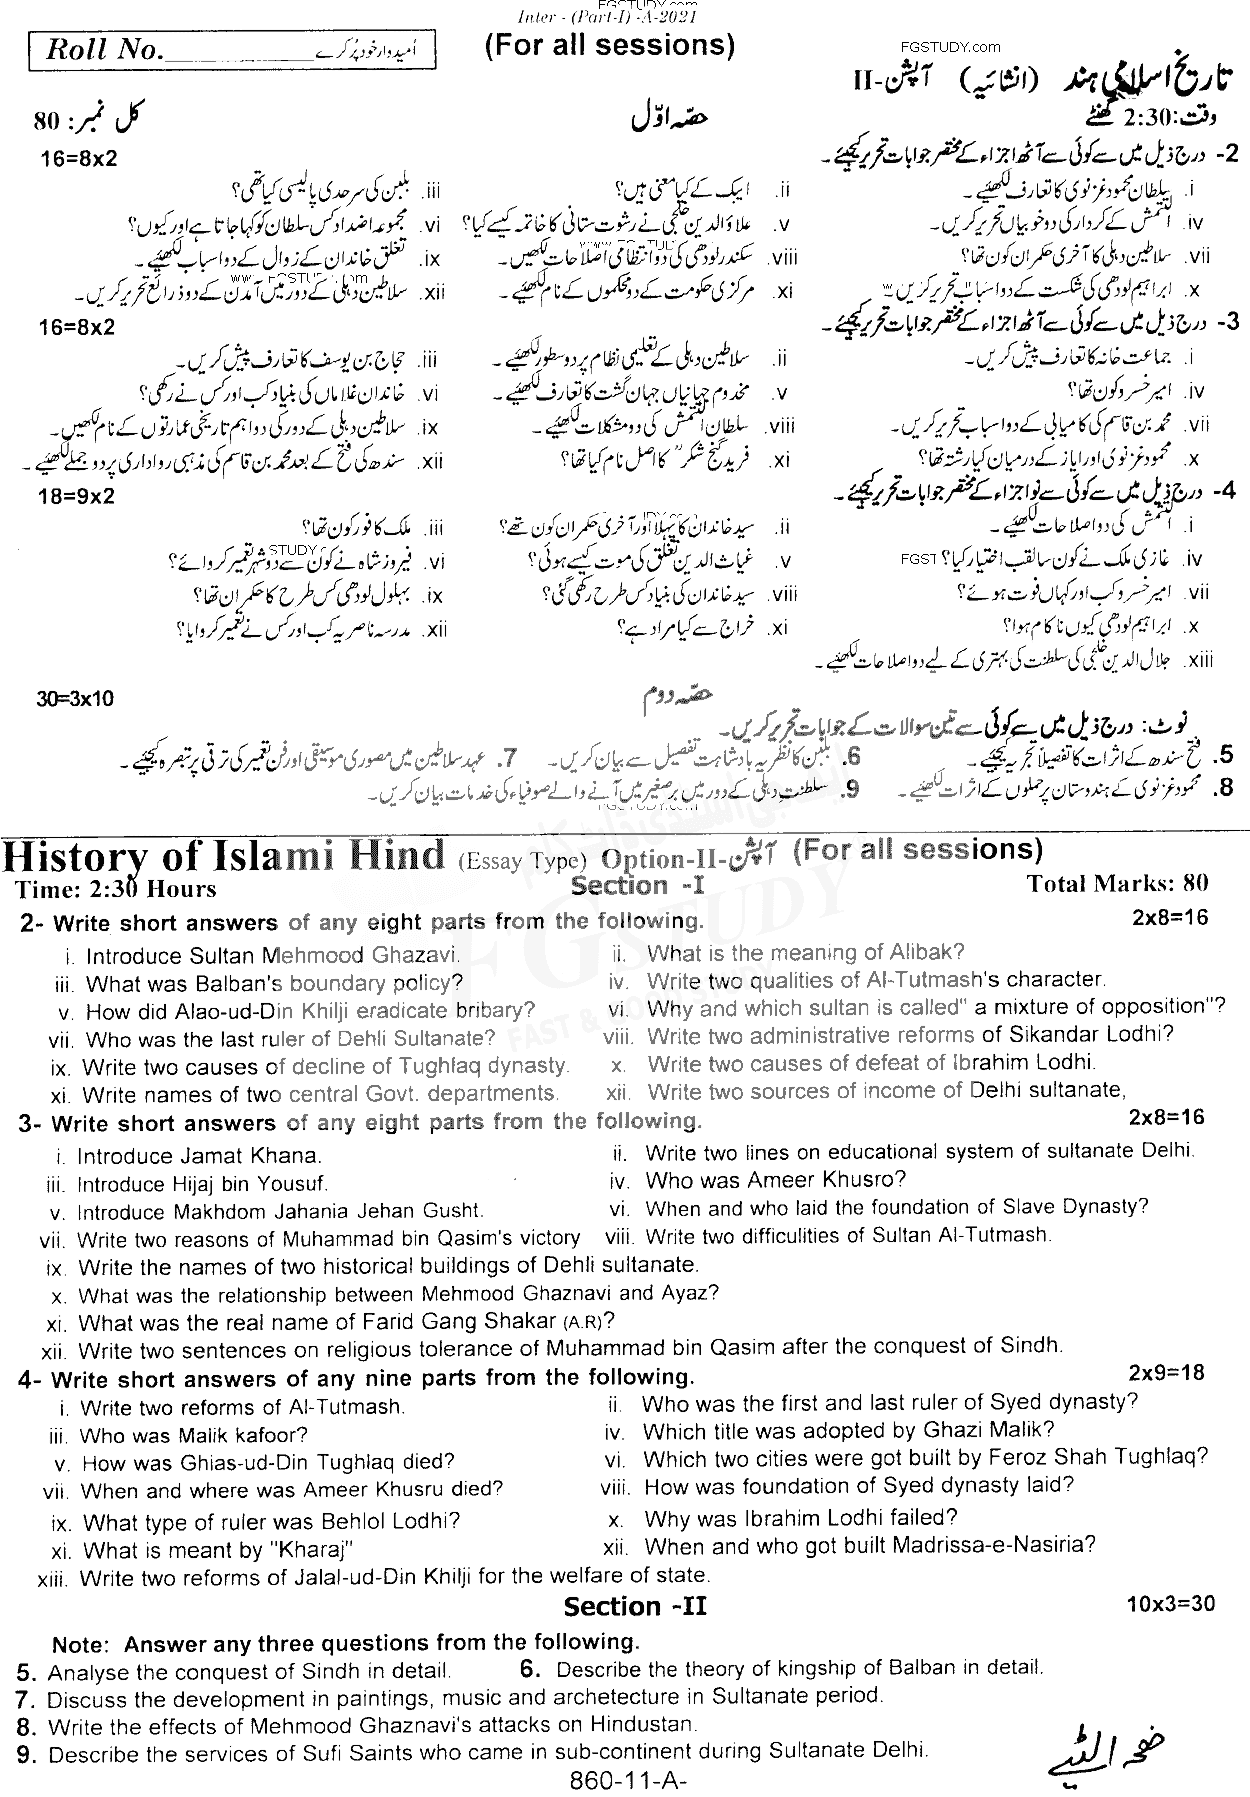 FGSTUDY.com
Inter - (Part-I) -A-2021
Roll No.____________ اُمیدوار خود پُر کرے
(For all sessions)
FGSTUDY.com
تاریخ اسلامی ہند (انشائیہ) آپشن-II
وقت: 2:30 گھنٹے
حصّہ اوّل
کل نمبر: 80
2- درج ذیل میں سے کوئی سے آٹھ اجزاء کے مختصر جوابات تحریر کیجئے۔ 16=8x2
i. سلطان محمود غزنوی کا تعارف لکھئے۔ ii. ایبک کے کیا معنی ہیں؟ iii. بلبن کی سرحدی پالیسی کیا تھی؟
iv. التمش کے کردار کی دو خوبیاں تحریر کریں۔ v. علاؤالدین خلجی نے رشوت ستانی کا خاتمہ کیسے کیا؟ vi. مجموعہ اضداد کس سلطان کو کہا جاتا ہے اور کیوں؟
vii. سلاطین دہلی کا آخری حکمران کون تھا؟ viii. سکندر لودھی کی دو انتظامی اصلاحات لکھیں۔ ix. تغلق خاندان کے زوال کے دو اسباب لکھئے۔
x. ابراہیم لودھی کی شکست کے دو اسباب تحریر کریں۔ xi. مرکزی حکومت کے دو محکموں کے نام لکھئے۔ xii. سلاطین دہلی کے دور میں آمدن کے دو ذرائع تحریر کریں۔
3- درج ذیل میں سے کوئی سے آٹھ اجزاء کے مختصر جوابات تحریر کیجئے۔ 16=8x2
i. جماعت خانہ کا تعارف پیش کریں۔ ii. سلاطین دہلی کے تعلیمی نظام پر دو سطور لکھئے۔ iii. حجاج بن یوسف کا تعارف پیش کریں۔
iv. امیر خسرو کون تھا؟ v. مخدوم جہانیاں جہان گشت کا تعارف لکھئے۔ vi. خاندان غلاماں کی بنیاد کب اور کس نے رکھی؟
vii. محمد بن قاسم کی کامیابی کے دو اسباب تحریر کریں۔ viii. سلطان التمش کی دو مشکلات لکھئے۔ ix. سلاطین دہلی کے دور کی دو اہم تاریخی عمارتوں کے نام لکھیں۔
x. محمود غزنوی اور ایاز کے درمیان کیا رشتہ تھا؟ xi. فرید گنج شکرؒ کا اصل نام کیا تھا؟ xii. سندھ کی فتح کے بعد محمد بن قاسم کی مذہبی رواداری پر دو جملے لکھئے۔
4- درج ذیل میں سے کوئی سے نو اجزاء کے مختصر جوابات تحریر کیجئے۔ 18=9x2
i. التمش کی دو اصلاحات لکھئے۔ ii. سید خاندان کا پہلا اور آخری حکمران کون تھے؟ iii. ملک کافور کون تھا؟
iv. غازی ملک نے کون سا لقب اختیار کیا؟ v. غیاث الدین تغلق کی موت کیسے ہوئی؟ vi. فیروز شاہ نے کون سے دو شہر تعمیر کروائے؟
vii. امیر خسرو کب اور کہاں فوت ہوئے؟ viii. سید خاندان کی بنیاد کس طرح رکھی گئی؟ ix. بہلول لودھی کس طرح کا حکمران تھا؟
x. ابراہیم لودھی کیوں ناکام ہوا؟ xi. خراج سے کیا مراد ہے؟ xii. مدرسہ ناصریہ کب اور کس نے تعمیر کروایا؟
xiii. جلال الدین خلجی کی سلطنت کی بہتری کے لیے دو اصلاحات لکھئے۔
حصّہ دوم 30=3x10
نوٹ: درج ذیل میں سے کوئی سے تین سوالات کے جوابات تحریر کریں۔
5. فتح سندھ کے اثرات کا تفصیلاً تجزیہ کیجئے۔ 6. بلبن کا نظریہ بادشاہت تفصیل سے بیان کریں۔ 7. عہد سلاطین میں مصوری موسیقی اور فن تعمیر کی ترقی پر تبصرہ کیجئے۔
8. محمود غزنوی کے ہندوستان پر حملوں کے اثرات لکھئے۔ 9. سلطنت دہلی کے دور میں برصغیر میں آنے والے صوفیاء کی خدمات بیان کریں۔
FGSTUDY.com
History of Islami Hind (Essay Type) Option-II-آپشن (For all sessions)
Time: 2:30 Hours Section -I Total Marks: 80
2- Write short answers of any eight parts from the following. 2x8=16
i. Introduce Sultan Mehmood Ghazavi. ii. What is the meaning of Alibak?
iii. What was Balban's boundary policy? iv. Write two qualities of Al-Tutmash's character.
v. How did Alao-ud-Din Khilji eradicate bribary? vi. Why and which sultan is called" a mixture of opposition"?
vii. Who was the last ruler of Dehli Sultanate? viii. Write two administrative reforms of Sikandar Lodhi?
ix. Write two causes of decline of Tughlaq dynasty. x. Write two causes of defeat of Ibrahim Lodhi.
xi. Write names of two central Govt. departments. xii. Write two sources of income of Delhi sultanate,
3- Write short answers of any eight parts from the following. 2x8=16
i. Introduce Jamat Khana. ii. Write two lines on educational system of sultanate Delhi.
iii. Introduce Hijaj bin Yousuf. iv. Who was Ameer Khusro?
v. Introduce Makhdom Jahania Jehan Gusht. vi. When and who laid the foundation of Slave Dynasty?
vii. Write two reasons of Muhammad bin Qasim's victory viii. Write two difficulities of Sultan Al-Tutmash.
ix. Write the names of two historical buildings of Dehli sultanate.
x. What was the relationship between Mehmood Ghaznavi and Ayaz?
xi. What was the real name of Farid Gang Shakar (A.R)?
xii. Write two sentences on religious tolerance of Muhammad bin Qasim after the conquest of Sindh.
4- Write short answers of any nine parts from the following. 2x9=18
i. Write two reforms of Al-Tutmash. ii. Who was the first and last ruler of Syed dynasty?
iii. Who was Malik kafoor? iv. Which title was adopted by Ghazi Malik?
v. How was Ghias-ud-Din Tughlaq died? vi. Which two cities were got built by Feroz Shah Tughlaq?
vii. When and where was Ameer Khusru died? viii. How was foundation of Syed dynasty laid?
ix. What type of ruler was Behlol Lodhi? x. Why was Ibrahim Lodhi failed?
xi. What is meant by "Kharaj" xii. When and who got built Madrissa-e-Nasiria?
xiii. Write two reforms of Jalal-ud-Din Khilji for the welfare of state.
Section -II 10x3=30
Note: Answer any three questions from the following.
5. Analyse the conquest of Sindh in detail. 6. Describe the theory of kingship of Balban in detail.
7. Discuss the development in paintings, music and archetecture in Sultanate period.
8. Write the effects of Mehmood Ghaznavi's attacks on Hindustan.
9. Describe the services of Sufi Saints who came in sub-continent during Sultanate Delhi.
صفحہ الٹیے
860-11-A-